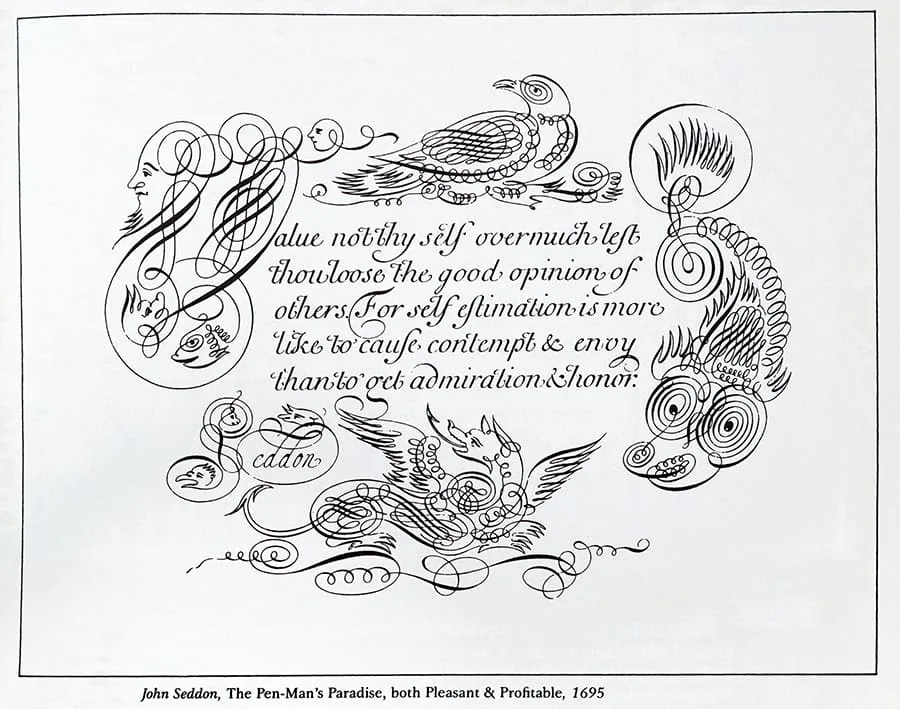 Value not thy self overmuch lest
thou loose the good opinion of
others. For self estimation is more
like to cause contempt & envy
than to get admiration & honor:
Seddon
John Seddon, The Pen-Man's Paradise, both Pleasant & Profitable, 1695